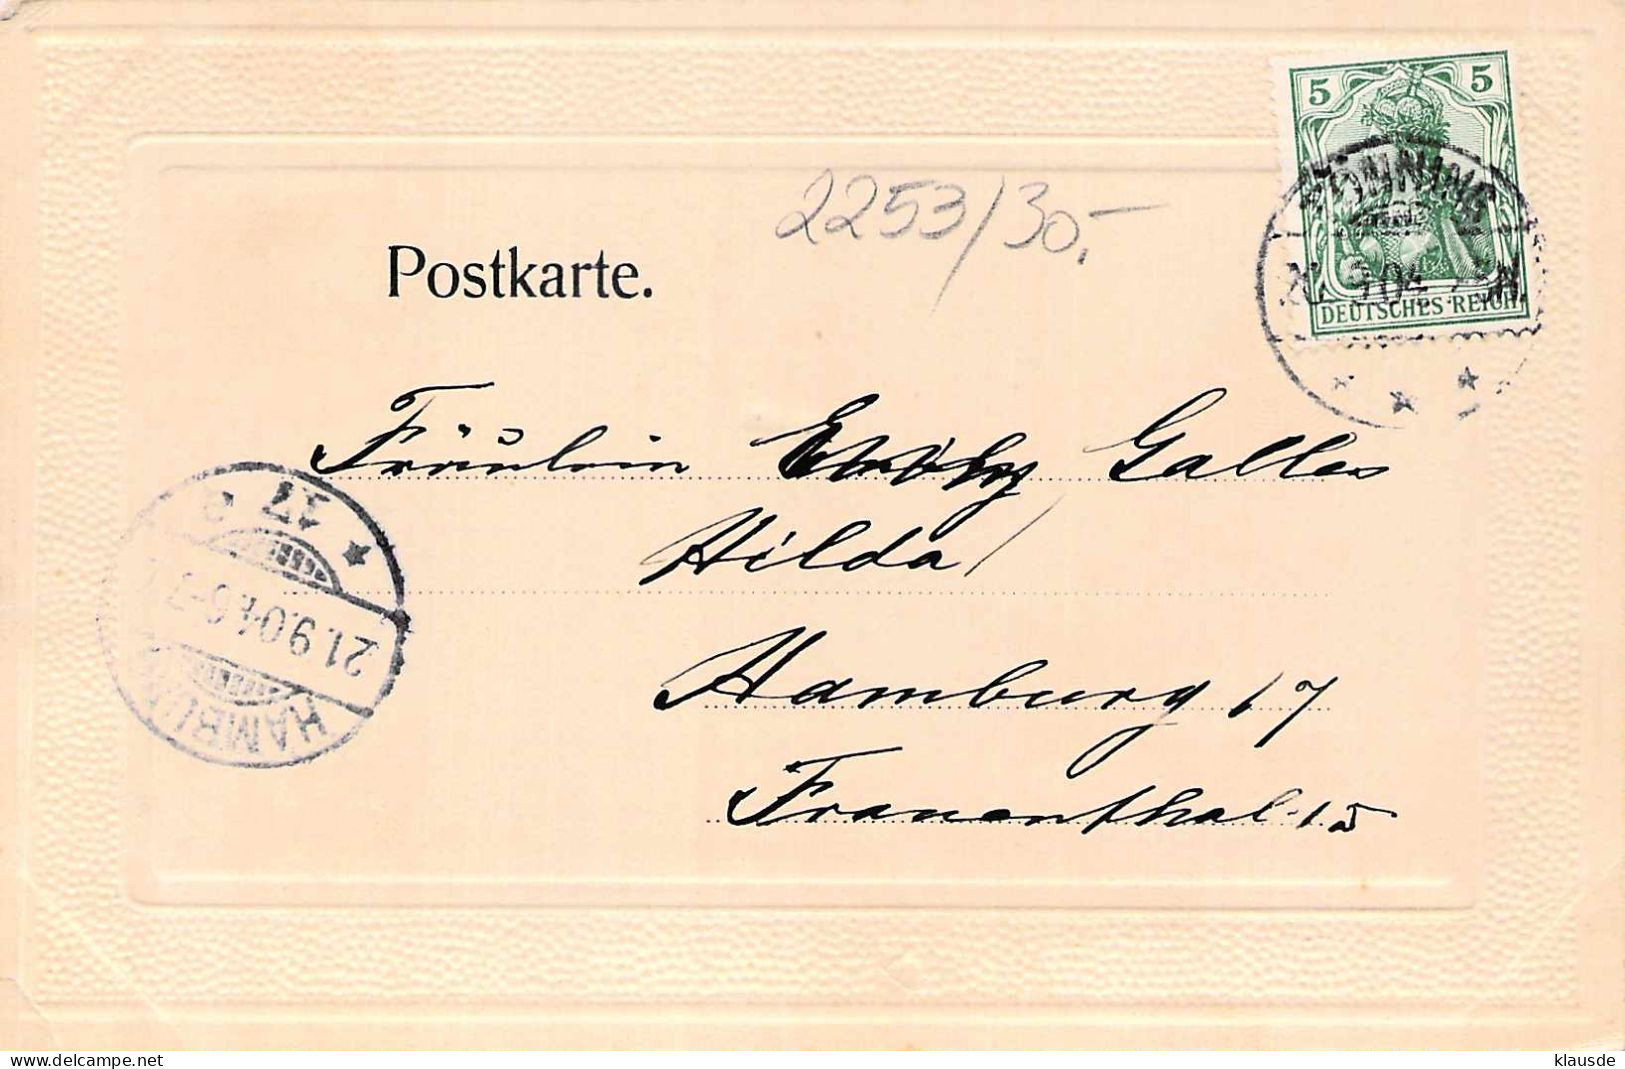 5 5
2253/30,-
Postkarte.
TÖNNING
20. 9.04. N.
DEUTSCHES REICH
Fräulein Galles
Hilda
17
21.9.04. 6-7
HAMBURG
Hamburg 17
Frauenthal 15
www.delcampe.net
klausde